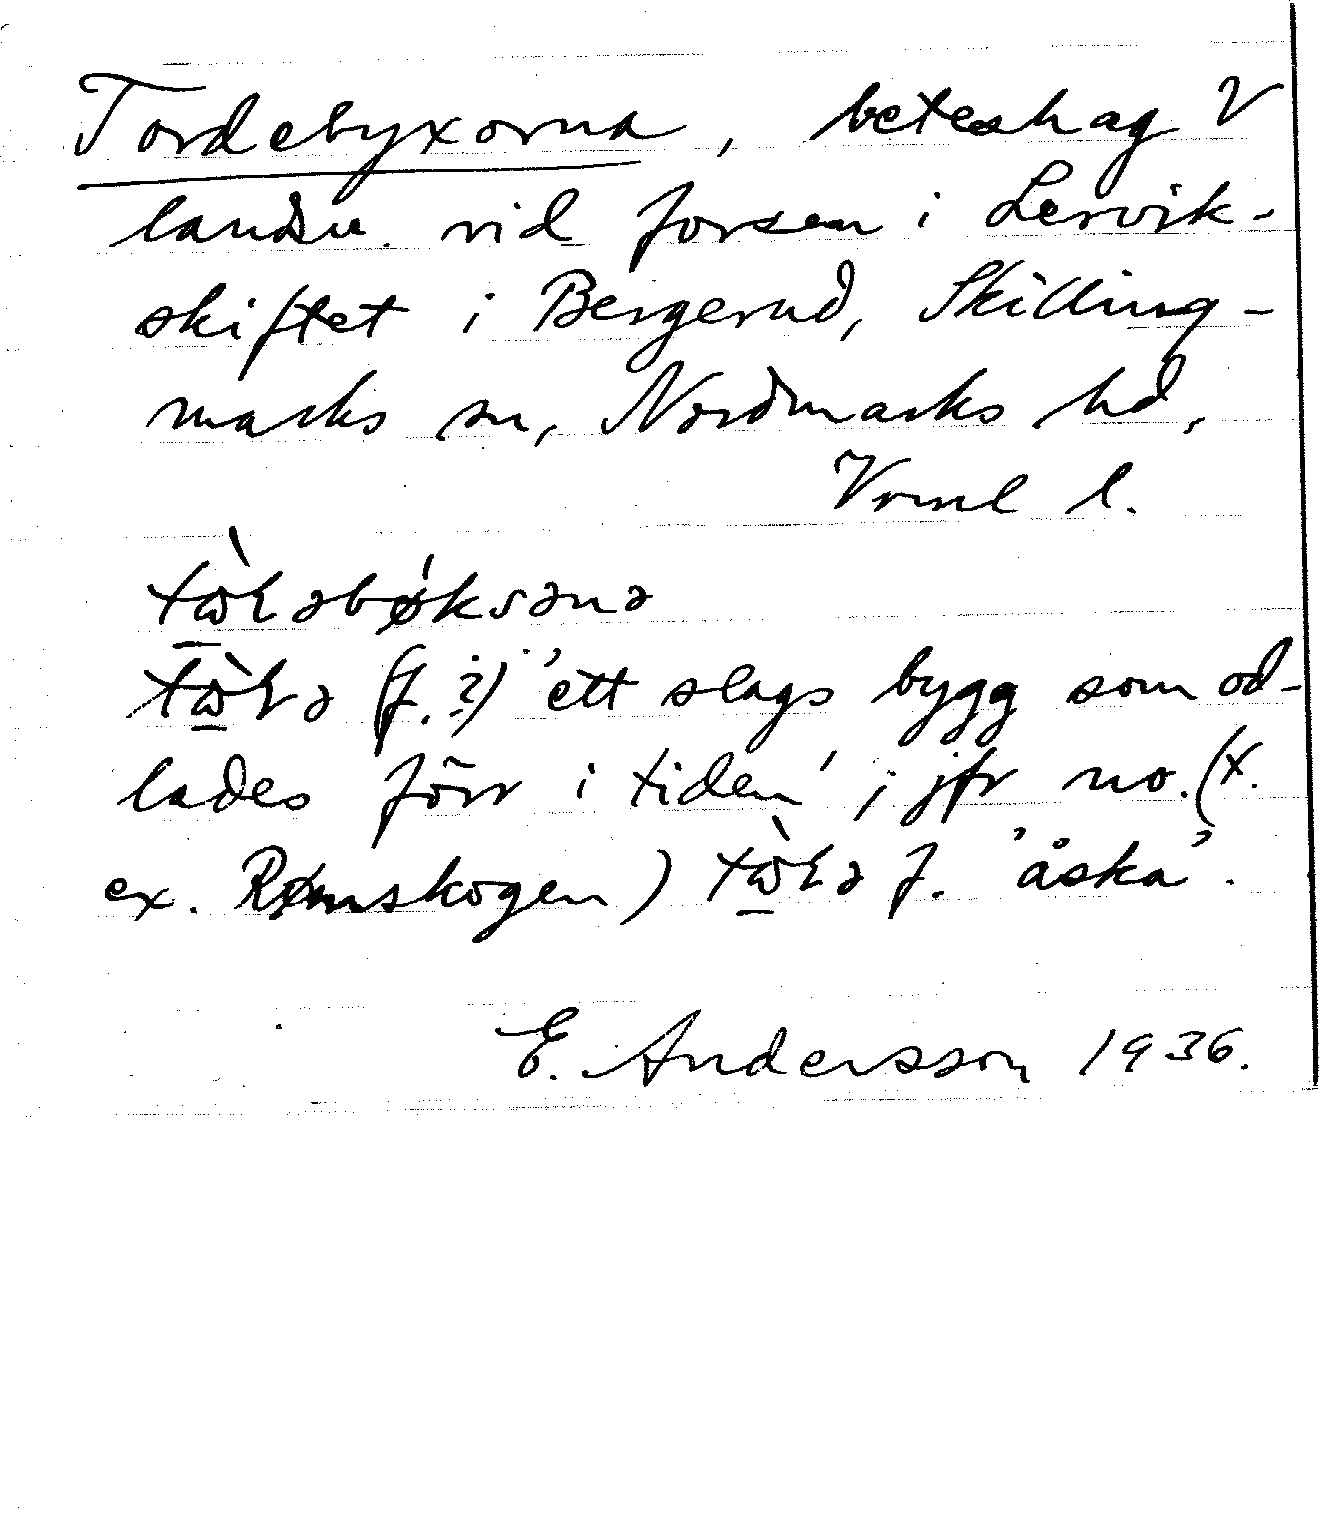 Tordebyxorna, beteshag V
landsv. vid forsen i Lervik-
skiftet i Bergerud, Skilling-
marks sn, Nordmarks hd,
Vrml l.
(f.?) 'ett slags bygg som od-
lades förr i tiden'; jfr no. (t.
ex. Rømskogen) f. 'åska'.
E. Andersson 1936.